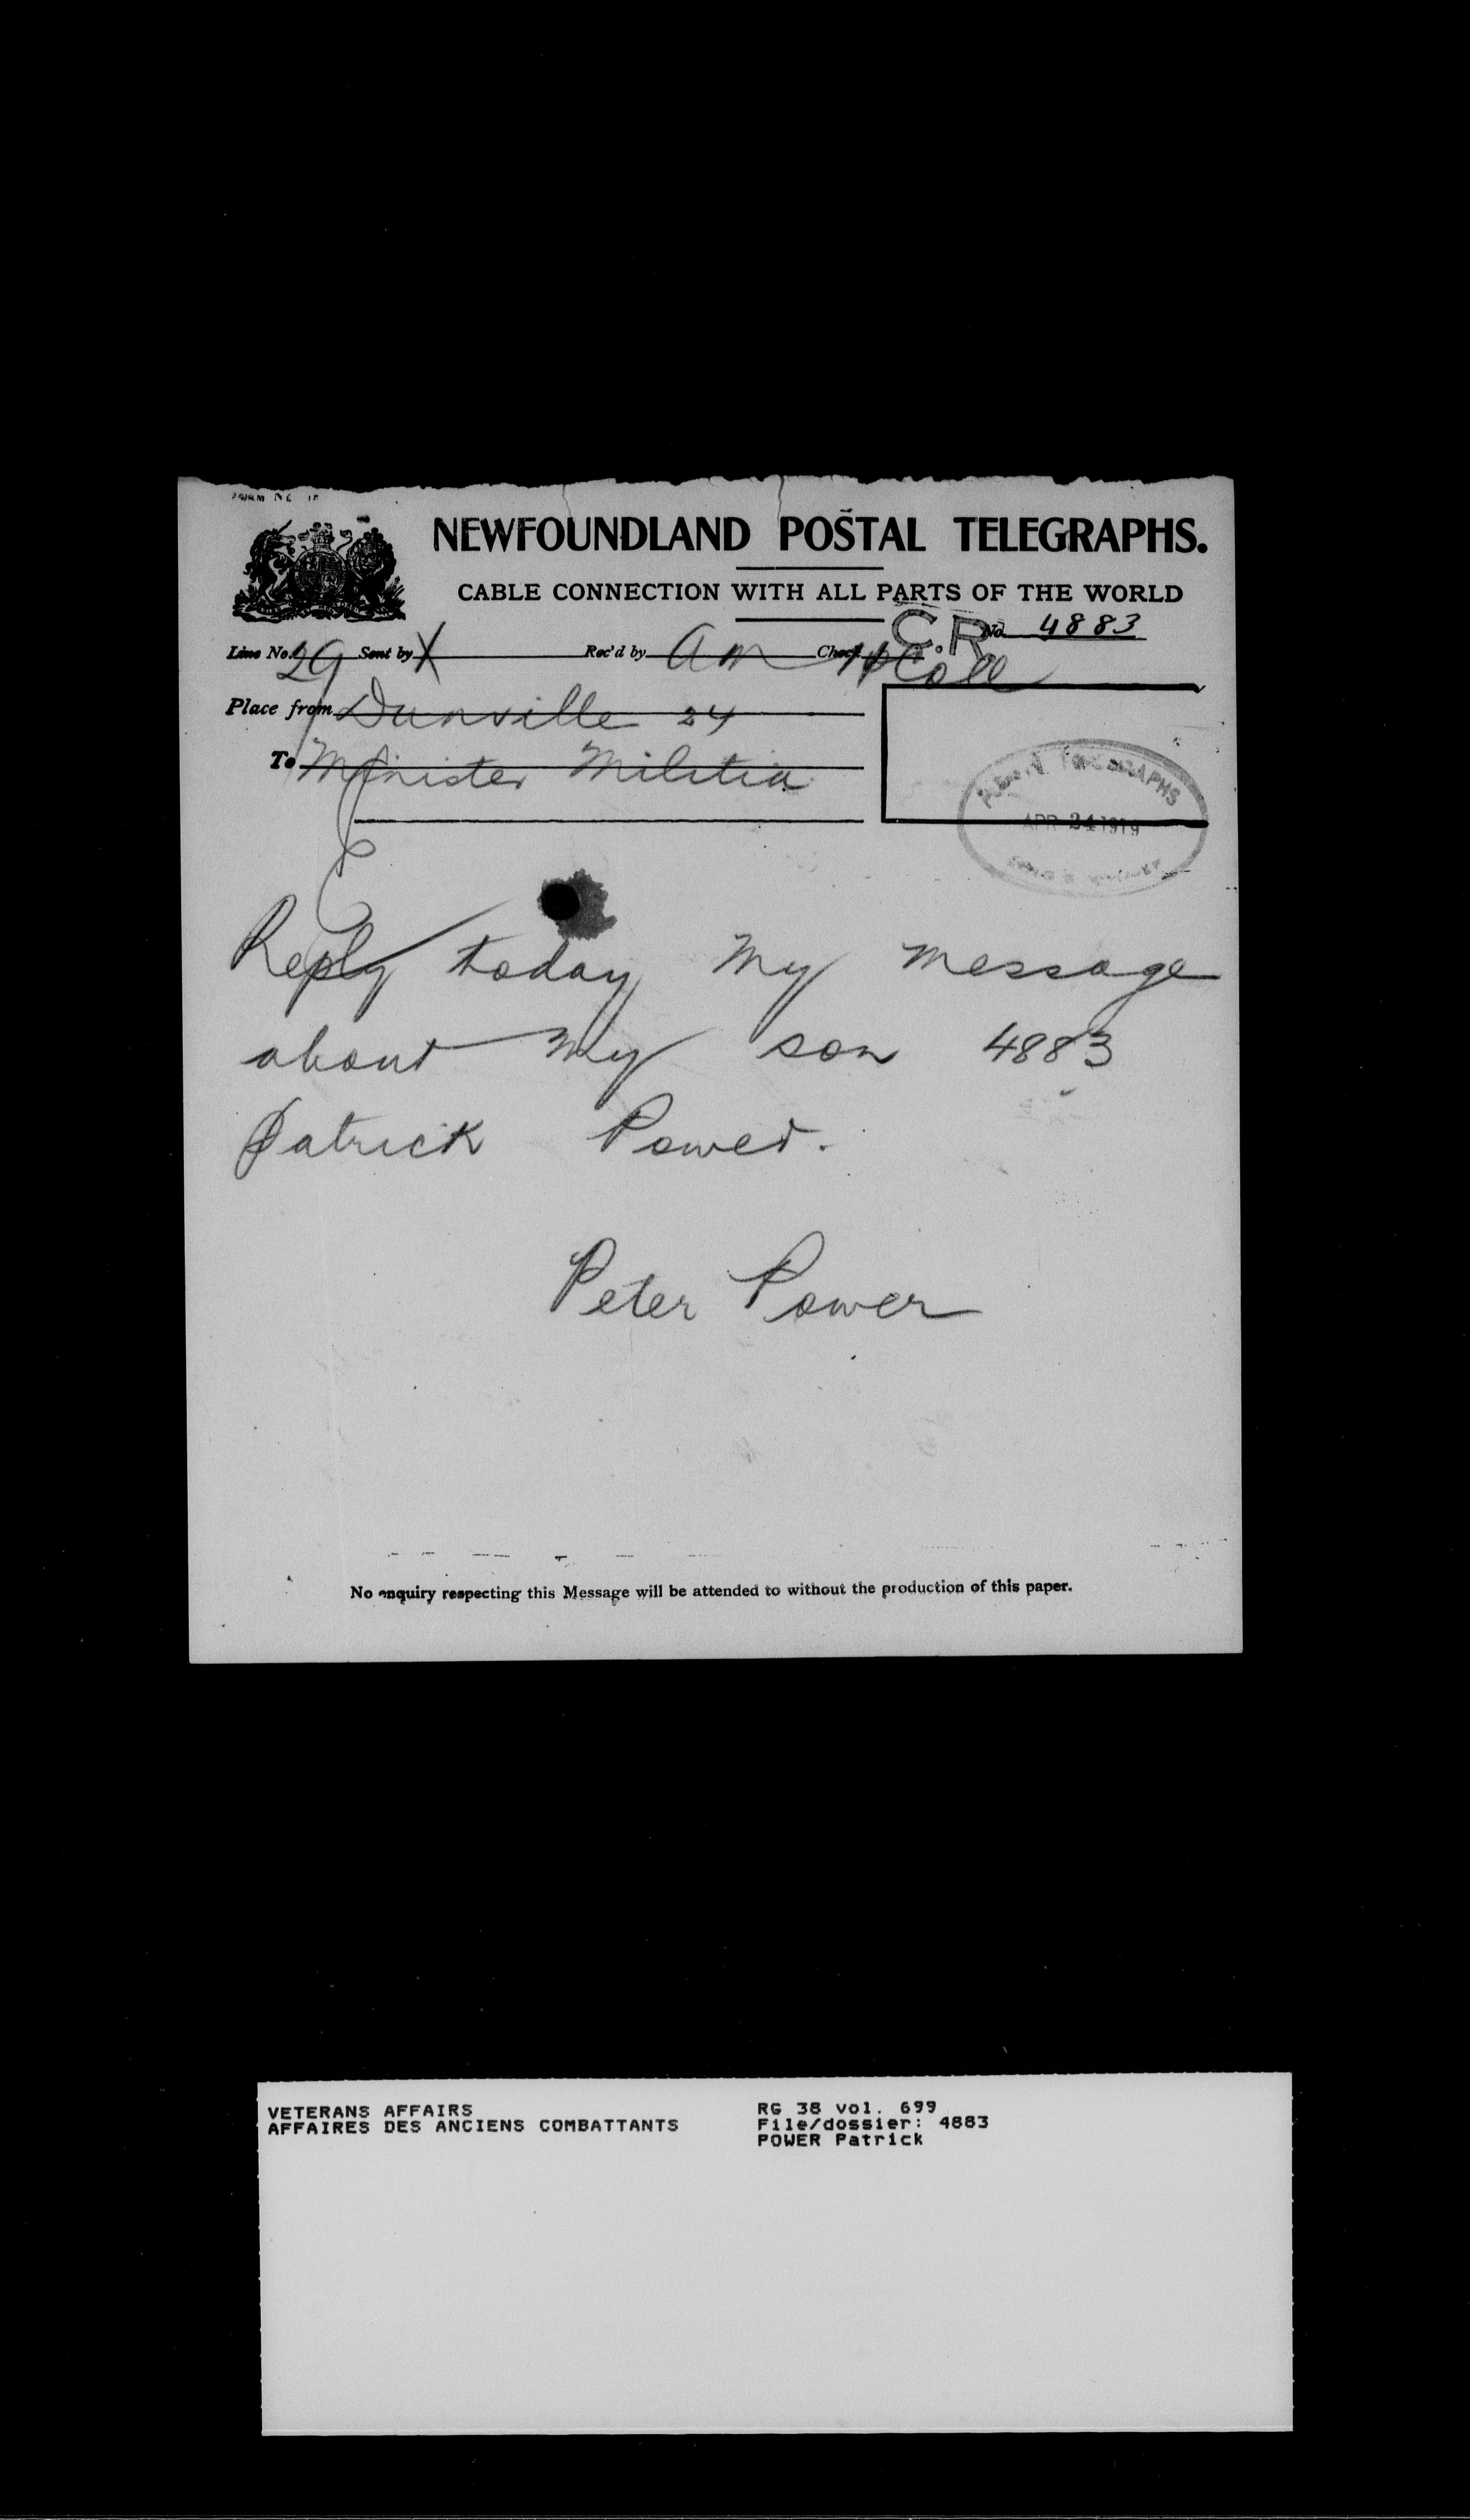 NEWFOUNDLAND POSTAL TELEGRAPHS.
CABLE CONNECTION WITH ALL PARTS OF THE WORLD
C.R. No. 4883
Line No. 29 Sent by X Rec'd by am Check Coll
Place from Dunville 24
To Minister Militia
TELEGRAPHS
APR 24 1919
Reply today my message
about my son 4883
Patrick Power.
Peter Power
No enquiry respecting this Message will be attended to without the production of this paper.
VETERANS AFFAIRS
AFFAIRES DES ANCIENS COMBATTANTS
RG 38 vol. 699
File/dossier: 4883
POWER Patrick